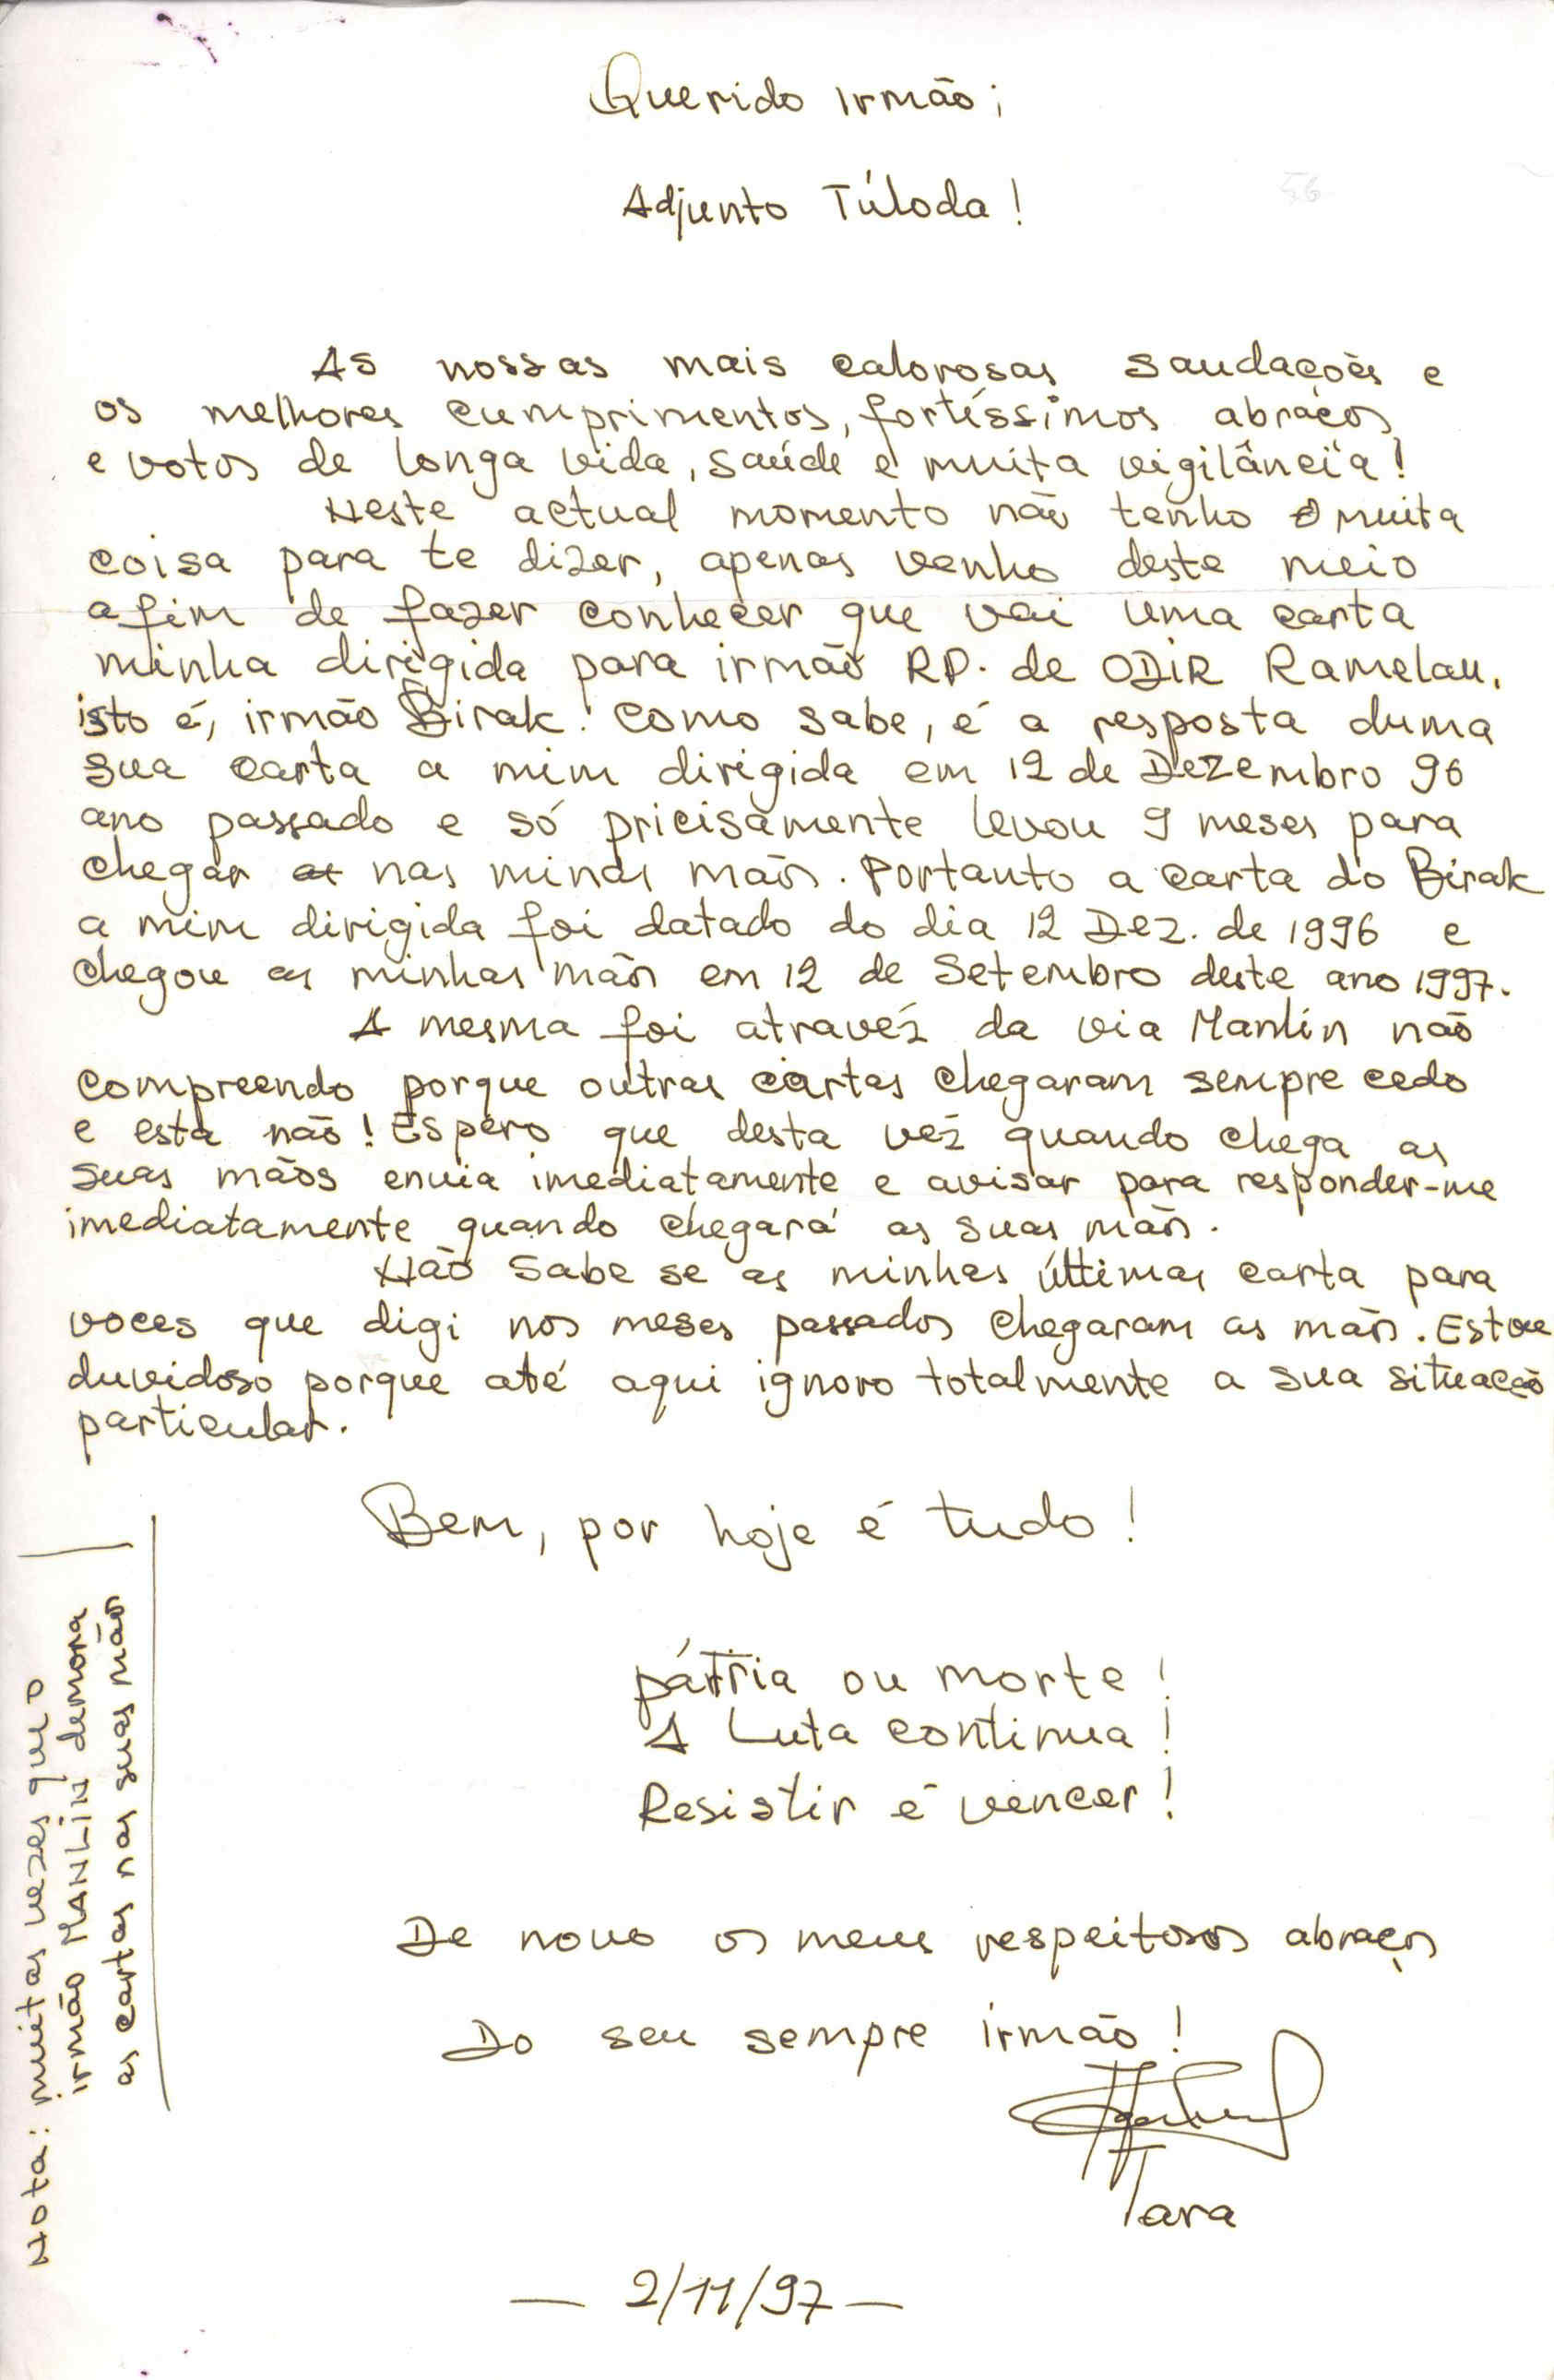 Querido irmão;
Adjunto Túloda!
As nossas mais calorosas saudações e
os melhores cumprimentos, fortíssimos abraços
e votos de longa vida, saúde e muita vigilância!
Neste actual momento não tenho muita
coisa para te dizer, apenas venho deste meio
afim de fazer conhecer que vai uma carta
minha dirigida para irmão RP. de ODIR Ramelau,
isto é, irmão Birak. Como sabe, é a resposta duma
sua carta a mim dirigida em 12 de Dezembro 96
ano passado e só pricisamente levou 9 meses para
chegar nas minas mãos. Portanto a carta do Birak
a mim dirigida foi datado do dia 12 Dez. de 1996 e
chegou as minhas mãos em 12 de Setembro deste ano 1997.
A mesma foi atravéz da via Manlin não
compreendo porque outras cartas chegaram sempre cedo
e esta não! Espero que desta vez quando chega as
suas mãos envia imediatamente e avisar para responder-me
imediatamente quando chegará as suas mãos.
Não sabe se as minhas últimas carta para
voces que digi nos meses passados chegaram as mãos. Estou
duvidoso porque até aqui ignoro totalmente a sua situação
particular.
Bem, por hoje é tudo!
pátria ou morte!
A Luta continua!
Resistir é vencer!
De novo os meus respeitosos abraços
Do seu sempre irmão!
Tara
— 2/11/97 —
Nota: muitas vezes que o
irmão MANLIN demora
as cartas nas suas mãos